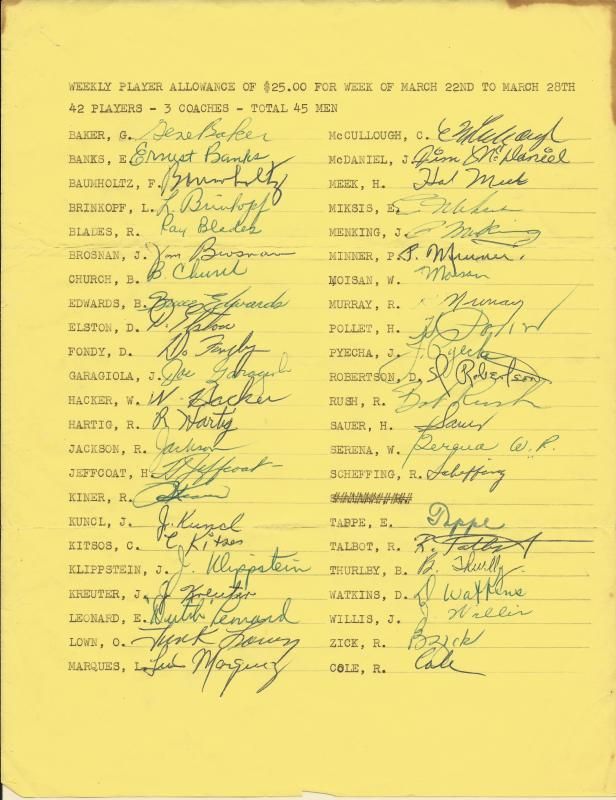 WEEKLY PLAYER ALLOWANCE OF $25.00 FOR WEEK OF MARCH 22ND TO MARCH 28TH
42 PLAYERS - 3 COACHES - TOTAL 45 MEN
BAKER, G. Gene Baker
BANKS, E Ernest Banks
BAUMHOLTZ, F. Baumholtz
BRINKOPF, L. L Brinkopf
BLADES, R. Ray Blades
BROSNAN, J. Jim Brosnan
CHURCH, B. B. Church
EDWARDS, B. Bruce Edwards
ELSTON, D. D. Elston
FONDY, D. D.
GARAGIOLA, J. Joe
HACKER, W. W. Hacker
HARTIG, R. R Hartig
JACKSON, R. Jackson
JEFFCOAT, H. H Jeffcoat
KINER, R.
KUNCL, J. J. Kuncl
KITSOS, C. C Kitsos
KLIPPSTEIN, J. J. Klippstein
KREUTER, J. J Kreuter
LEONARD, E. Dutch Leonard
LOWN, O. Turk Lown
MARQUES, L. Marquez
McCULLOUGH, C. C McCullough
McDANIEL, J. Jim McDaniel
MEEK, H. Hal Meek
MIKSIS, E. E Miksis
MENKING, J.
MINNER, P. P. Minner
MOISAN, W. Moisan
MURRAY, R. Murray
POLLET, H. H Pollet
PYECHA, J. J. Pyecha
ROBERTSON, D. D Robertson
RUSH, R. Bob Rush
SAUER, H. Sauer
SERENA, W. W. R.
SCHEFFING, R. Scheffing
TAPPE, E. Tappe
TALBOT, R. R. Talbot
THURLBY, B. B.
WATKINS, D. D Watkins
WILLIS, J. Willis
ZICK, R. B Zick
COLE, R. Cole